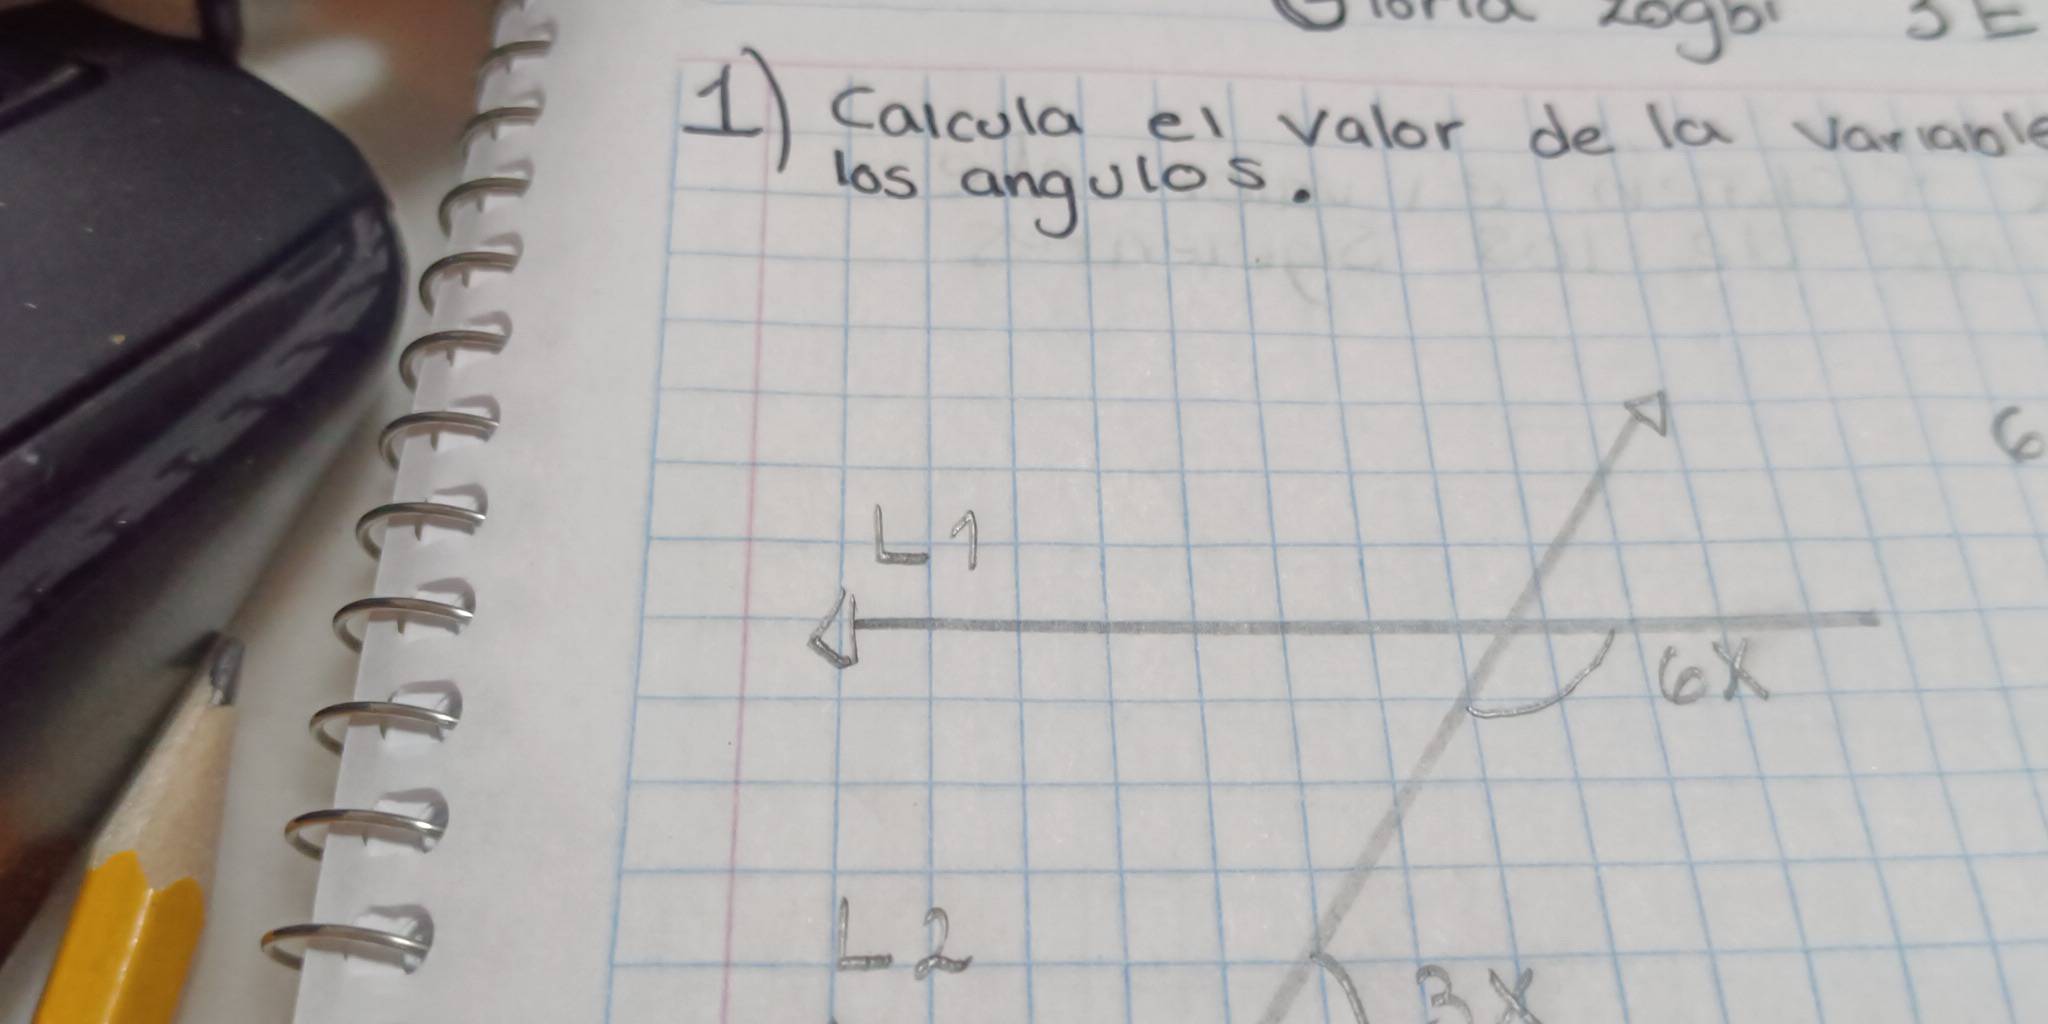 Gloria Zogbi 3E
1) Calcula el valor de la variable
los angulos.
6
L1
6x
L2
3x